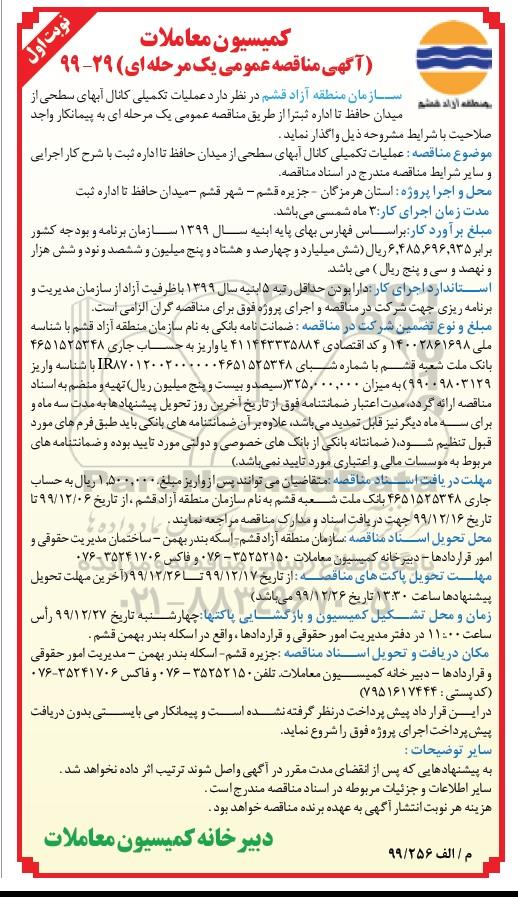 نوبت اول
کمیسیون معاملات
(آگهی مناقصه عمومی یک مرحله ای) ۲۹-۹۹
منطقه آزاد قشم
سازمان منطقه آزاد قشم در نظر دارد عملیات تکمیلی کانال آبهای سطحی از
میدان حافظ تا اداره ثبت را از طریق مناقصه عمومی یک مرحله ای به پیمانکار واجد
صلاحیت با شرایط مشروحه ذیل واگذار نماید .
موضوع مناقصه : عملیات تکمیلی کانال آبهای سطحی از میدان حافظ تا اداره ثبت با شرح کار اجرایی
و سایر شرایط مناقصه مندرج در اسناد مناقصه.
محل و اجرا پروژه : استان هرمزگان - جزیره قشم – شهر قشم –میدان حافظ تا اداره ثبت
مدت زمان اجرای کار: ۳ ماه شمسی می‌باشد.
مبلغ برآورد کار: براساس فهارس بهای پایه ابنیه سال ۱۳۹۹ سازمان برنامه و بودجه کشور
برابر ۶,۴۸۵,۶۹۶,۹۳۵ ریال (شش میلیارد و چهارصد و هشتاد و پنج میلیون و ششصد و نود و شش هزار
و نهصد و سی و پنج ریال ) می باشد.
استاندارد اجرای کار: دارا بودن حداقل رتبه ۵ ابنیه سال ۱۳۹۹ با ظرفیت آزاد از سازمان مدیریت و
برنامه ریزی جهت شرکت در مناقصه و اجرای پروژه فوق برای مناقصه گران الزامی است.
مبلغ و نوع تضمین شرکت در مناقصه : ضمانت نامه بانکی به نام سازمان منطقه آزاد قشم با شناسه
ملی ۱۴۰۰۲۸۶۱۶۹۸ و کد اقتصادی ۴۱۱۴۴۳۳۳۵۸۸۴ یا واریز به حساب جاری ۴۶۵۱۵۲۵۳۴۸
بانک ملت شعبه قشم با شماره شبای IR۸۷۰۱۲۰۰۲۰۰۰۰۰۰۴۶۵۱۵۲۵۳۴۸ با شناسه واریز
(۹۹۰۰۹۸۰۳۱۲۹) به میزان ۳۲۵,۰۰۰,۰۰۰(سیصد و بیست و پنج میلیون ریال) تهیه و منضم به اسناد
مناقصه ارائه گردد، مدت اعتبار ضمانتنامه فوق از تاریخ آخرین روز تحویل پیشنهادها به مدت سه ماه و
برای سه ماه دیگر نیز قابل تمدید می‌باشد، علاوه بر آن ضمانتنامه های بانکی باید طبق فرم های مورد
قبول تنظیم شود،( ضمانتانه بانکی از بانک های خصوصی و دولتی مورد تایید بوده و ضمانتنامه های
مربوط به موسسات مالی و اعتباری مورد تایید نمی‌باشد.)
مهلت دریافت اسناد مناقصه : متقاضیان می توانند پس از واریز مبلغ ۱,۵۰۰,۰۰۰ ریال به حساب
جاری ۴۶۵۱۵۲۵۳۴۸ بانک ملت شعبه قشم به نام سازمان منطقه آزاد قشم ، از تاریخ ۹۹/۱۲/۰۶ تا
تاریخ ۹۹/۱۲/۱۶ جهت دریافت اسناد و مدارک مناقصه مراجعه نمایند .
محل تحویل اسناد مناقصه :سازمان منطقه آزاد قشم- اسکه بندر بهمن – ساختمان مدیریت حقوقی و
امور قراردادها – دبیرخانه کمیسیون معاملات ۳۵۲۵۲۱۵۰ – ۰۷۶ و فاکس ۳۵۲۴۱۷۰۶-۰۷۶
مهلت تحویل پاکت های مناقصه : از تاریخ ۹۹/۱۲/۱۷ تا ۹۹/۱۲/۲۶ (آخرین مهلت تحویل
پیشنهادها ساعت ۱۳:۳۰ تاریخ ۹۹/۱۲/۲۶ می‌باشد)
زمان و محل تشکیل کمیسیون و بازگشایی پاکتها: چهارشنبه تاریخ ۹۹/۱۲/۲۷ رأس
ساعت ۱۱:۰۰ در دفتر مدیریت امور حقوقی و قراردادها ، واقع در اسکله بندر بهمن قشم .
مکان دریافت و تحویل اسناد مناقصه : جزیره قشم- اسکله بندر بهمن – مدیریت امور حقوقی
و قراردادها – دبیر خانه کمیسیون معاملات. تلفن ۳۵۲۵۲۱۵۰ – ۰۷۶ و فاکس ۳۵۲۴۱۷۰۶-۰۷۶
(کدپستی : ۷۹۵۱۶۱۷۴۴۴)
در این قرار داد پیش پرداخت درنظر گرفته نشده است و پیمانکار می بایستی بدون دریافت
پیش پرداخت اجرای پروژه فوق را شروع نماید.
سایر توضیحات :
به پیشنهادهایی که پس از انقضای مدت مقرر در آگهی واصل شوند ترتیب اثر داده نخواهد شد .
سایر اطلاعات و جزئیات مربوطه در اسناد مناقصه مندرج است .
هزینه هر نوبت انتشار آگهی به عهده برنده مناقصه خواهد بود .
دبیرخانه کمیسیون معاملات
م / الف ۹۹/۲۵۶